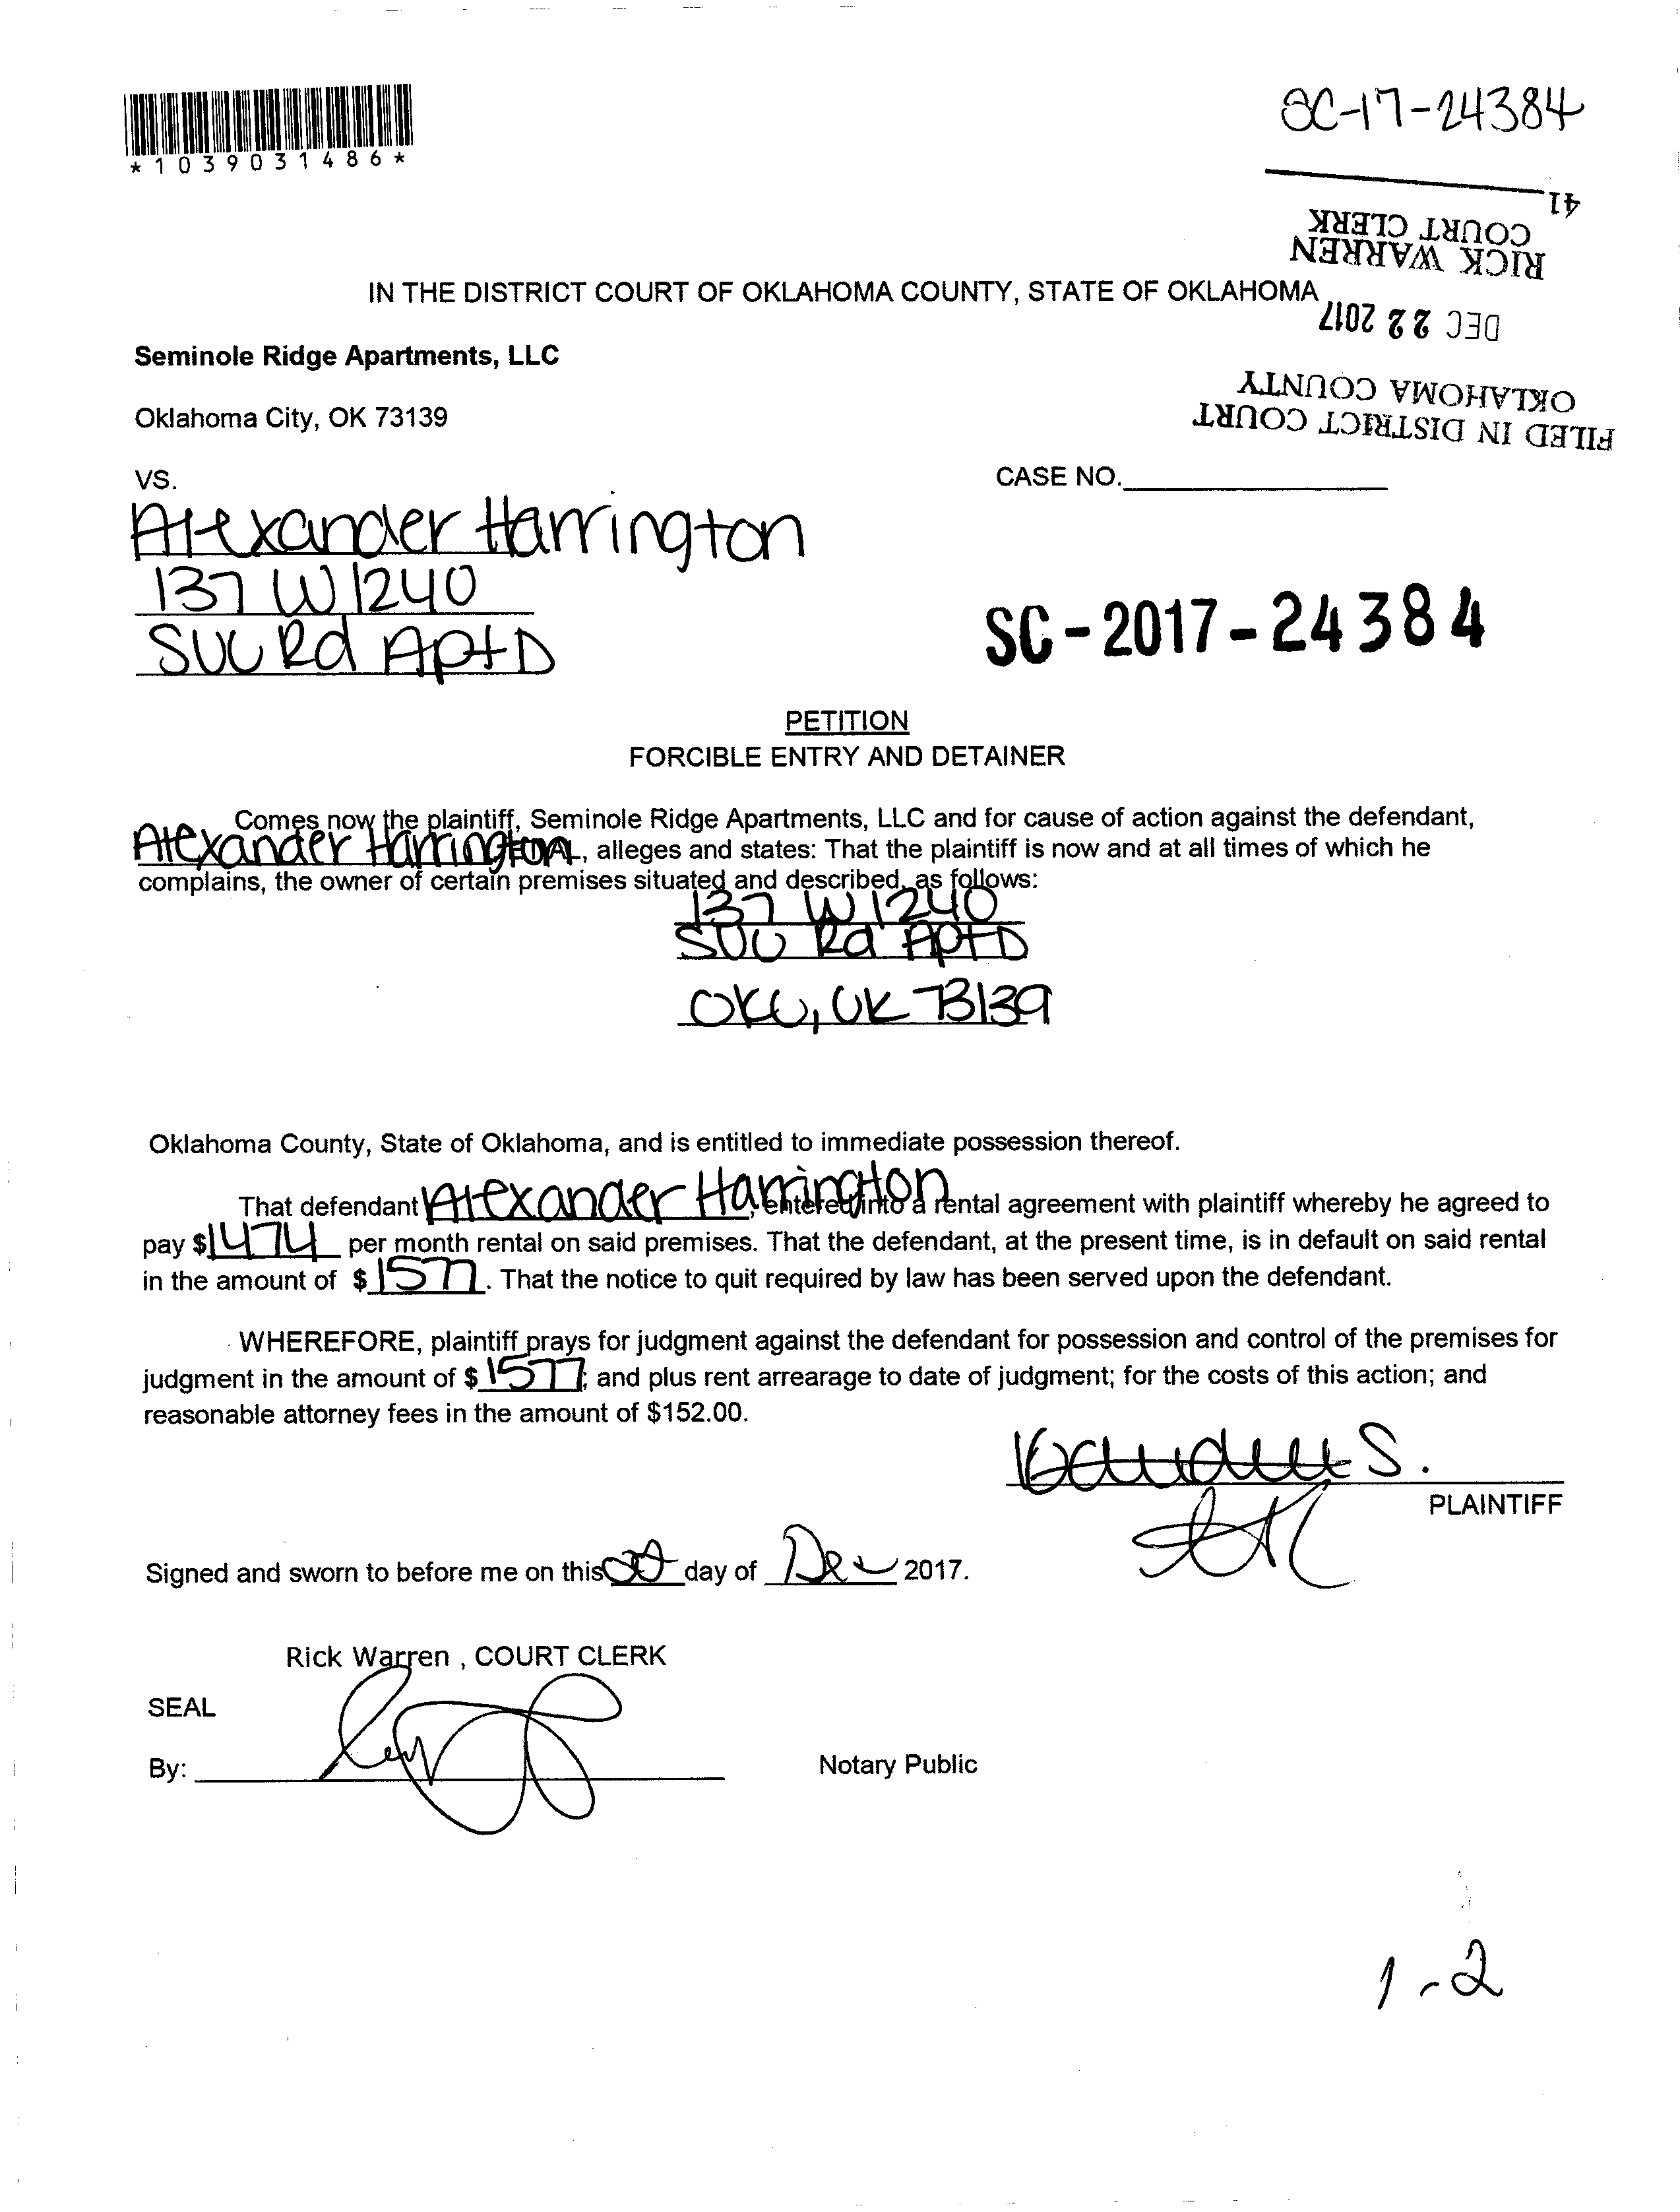 *1039031486*
SC-17-24384
41
RICK WARREN
COURT CLERK
DEC 22 2017
FILED IN DISTRICT COURT
OKLAHOMA COUNTY
IN THE DISTRICT COURT OF OKLAHOMA COUNTY, STATE OF OKLAHOMA
Seminole Ridge Apartments, LLC
Oklahoma City, OK 73139
VS.
CASE NO.
Alexander Harrington
137 W 1240
SVC Rd Apt D
SC-2017-24384
PETITION
FORCIBLE ENTRY AND DETAINER
Comes now the plaintiff, Seminole Ridge Apartments, LLC and for cause of action against the defendant,
Alexander Harrington, alleges and states: That the plaintiff is now and at all times of which he
complains, the owner of certain premises situated and described, as follows:
137 W 1240
SVC Rd Apt D
OKC, OK 73139
Oklahoma County, State of Oklahoma, and is entitled to immediate possession thereof.
That defendant Alexander Harrington, entered into a rental agreement with plaintiff whereby he agreed to
pay $1474 per month rental on said premises. That the defendant, at the present time, is in default on said rental
in the amount of $1577. That the notice to quit required by law has been served upon the defendant.
WHEREFORE, plaintiff prays for judgment against the defendant for possession and control of the premises for
judgment in the amount of $1577; and plus rent arrearage to date of judgment; for the costs of this action; and
reasonable attorney fees in the amount of $152.00.
S.
PLAINTIFF
Signed and sworn to before me on this day of Dec 2017.
Rick Warren , COURT CLERK
SEAL
By:
Notary Public
1-2